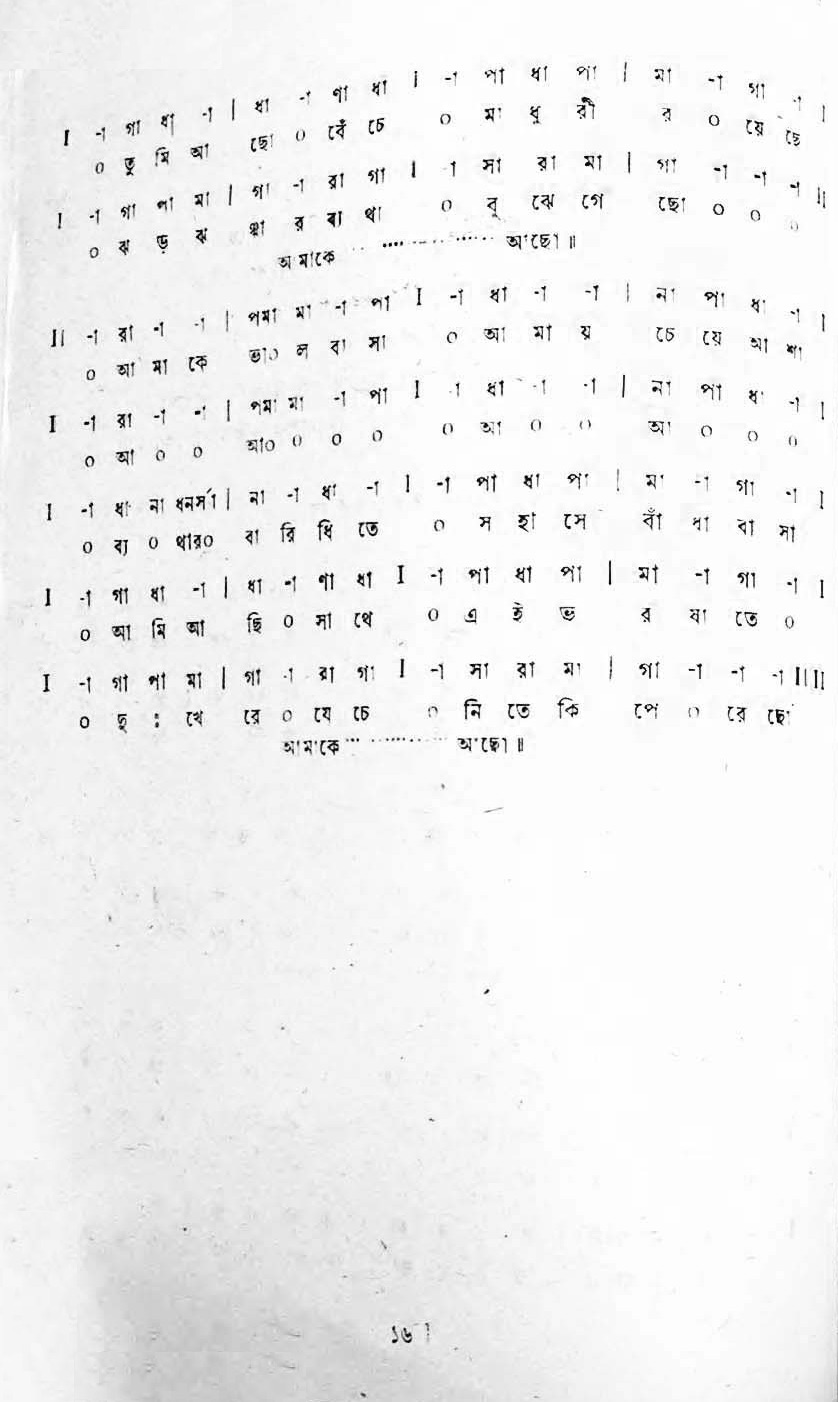 I -া গা ধা -া | ধা -া ণা ধা I -া পা ধা পা | মা -া গা -া I
০ তু মি আ ছো ০ বেঁ চে ০ মা ধু রী র ০ য়ে ছে
I -া গা পা মা | গা -া রা গা I -া সা রা মা | গা -া -া -া II
০ ঝ ড় ঝ ঞ্ঝা র ব্য থা ০ বু ঝে গে ছো ০ ০ ০
আমাকে .................. আছো॥
II -া রা -া -া | পমা মা -া পা I -া ধা -া -া | না পা ধা -া I
০ আ মা কে ভা০ ল বা সা ০ আ মা য় চে য়ে আ শা
I -া রা -া -া | পমা মা -া পা I -া ধা -া -া | না পা ধা -া I
০ আ ০ ০ আ০ ০ ০ ০ ০ আ ০ ০ আ ০ ০ ০
I -া ধা না ধনর্সা | না -া ধা -া I -া পা ধা পা | মা -া গা -া I
০ ব্য ০ থার০ বা রি ধি তে ০ স হা সে বাঁ ধা বা সা
I -া গা ধা -া | ধা -া ণা ধা I -া পা ধা পা | মা -া গা -া I
০ আ মি আ ছি ০ সা থে ০ এ ই ভ র ষা তে ০
I -া গা পা মা | গা -া রা গা I -া সা রা মা | গা -া -া -া II II
০ দু ঃ খে রে ০ যে চে ০ নি তে কি পে ০ রে ছো
আমাকে .................. আছো॥
১৬